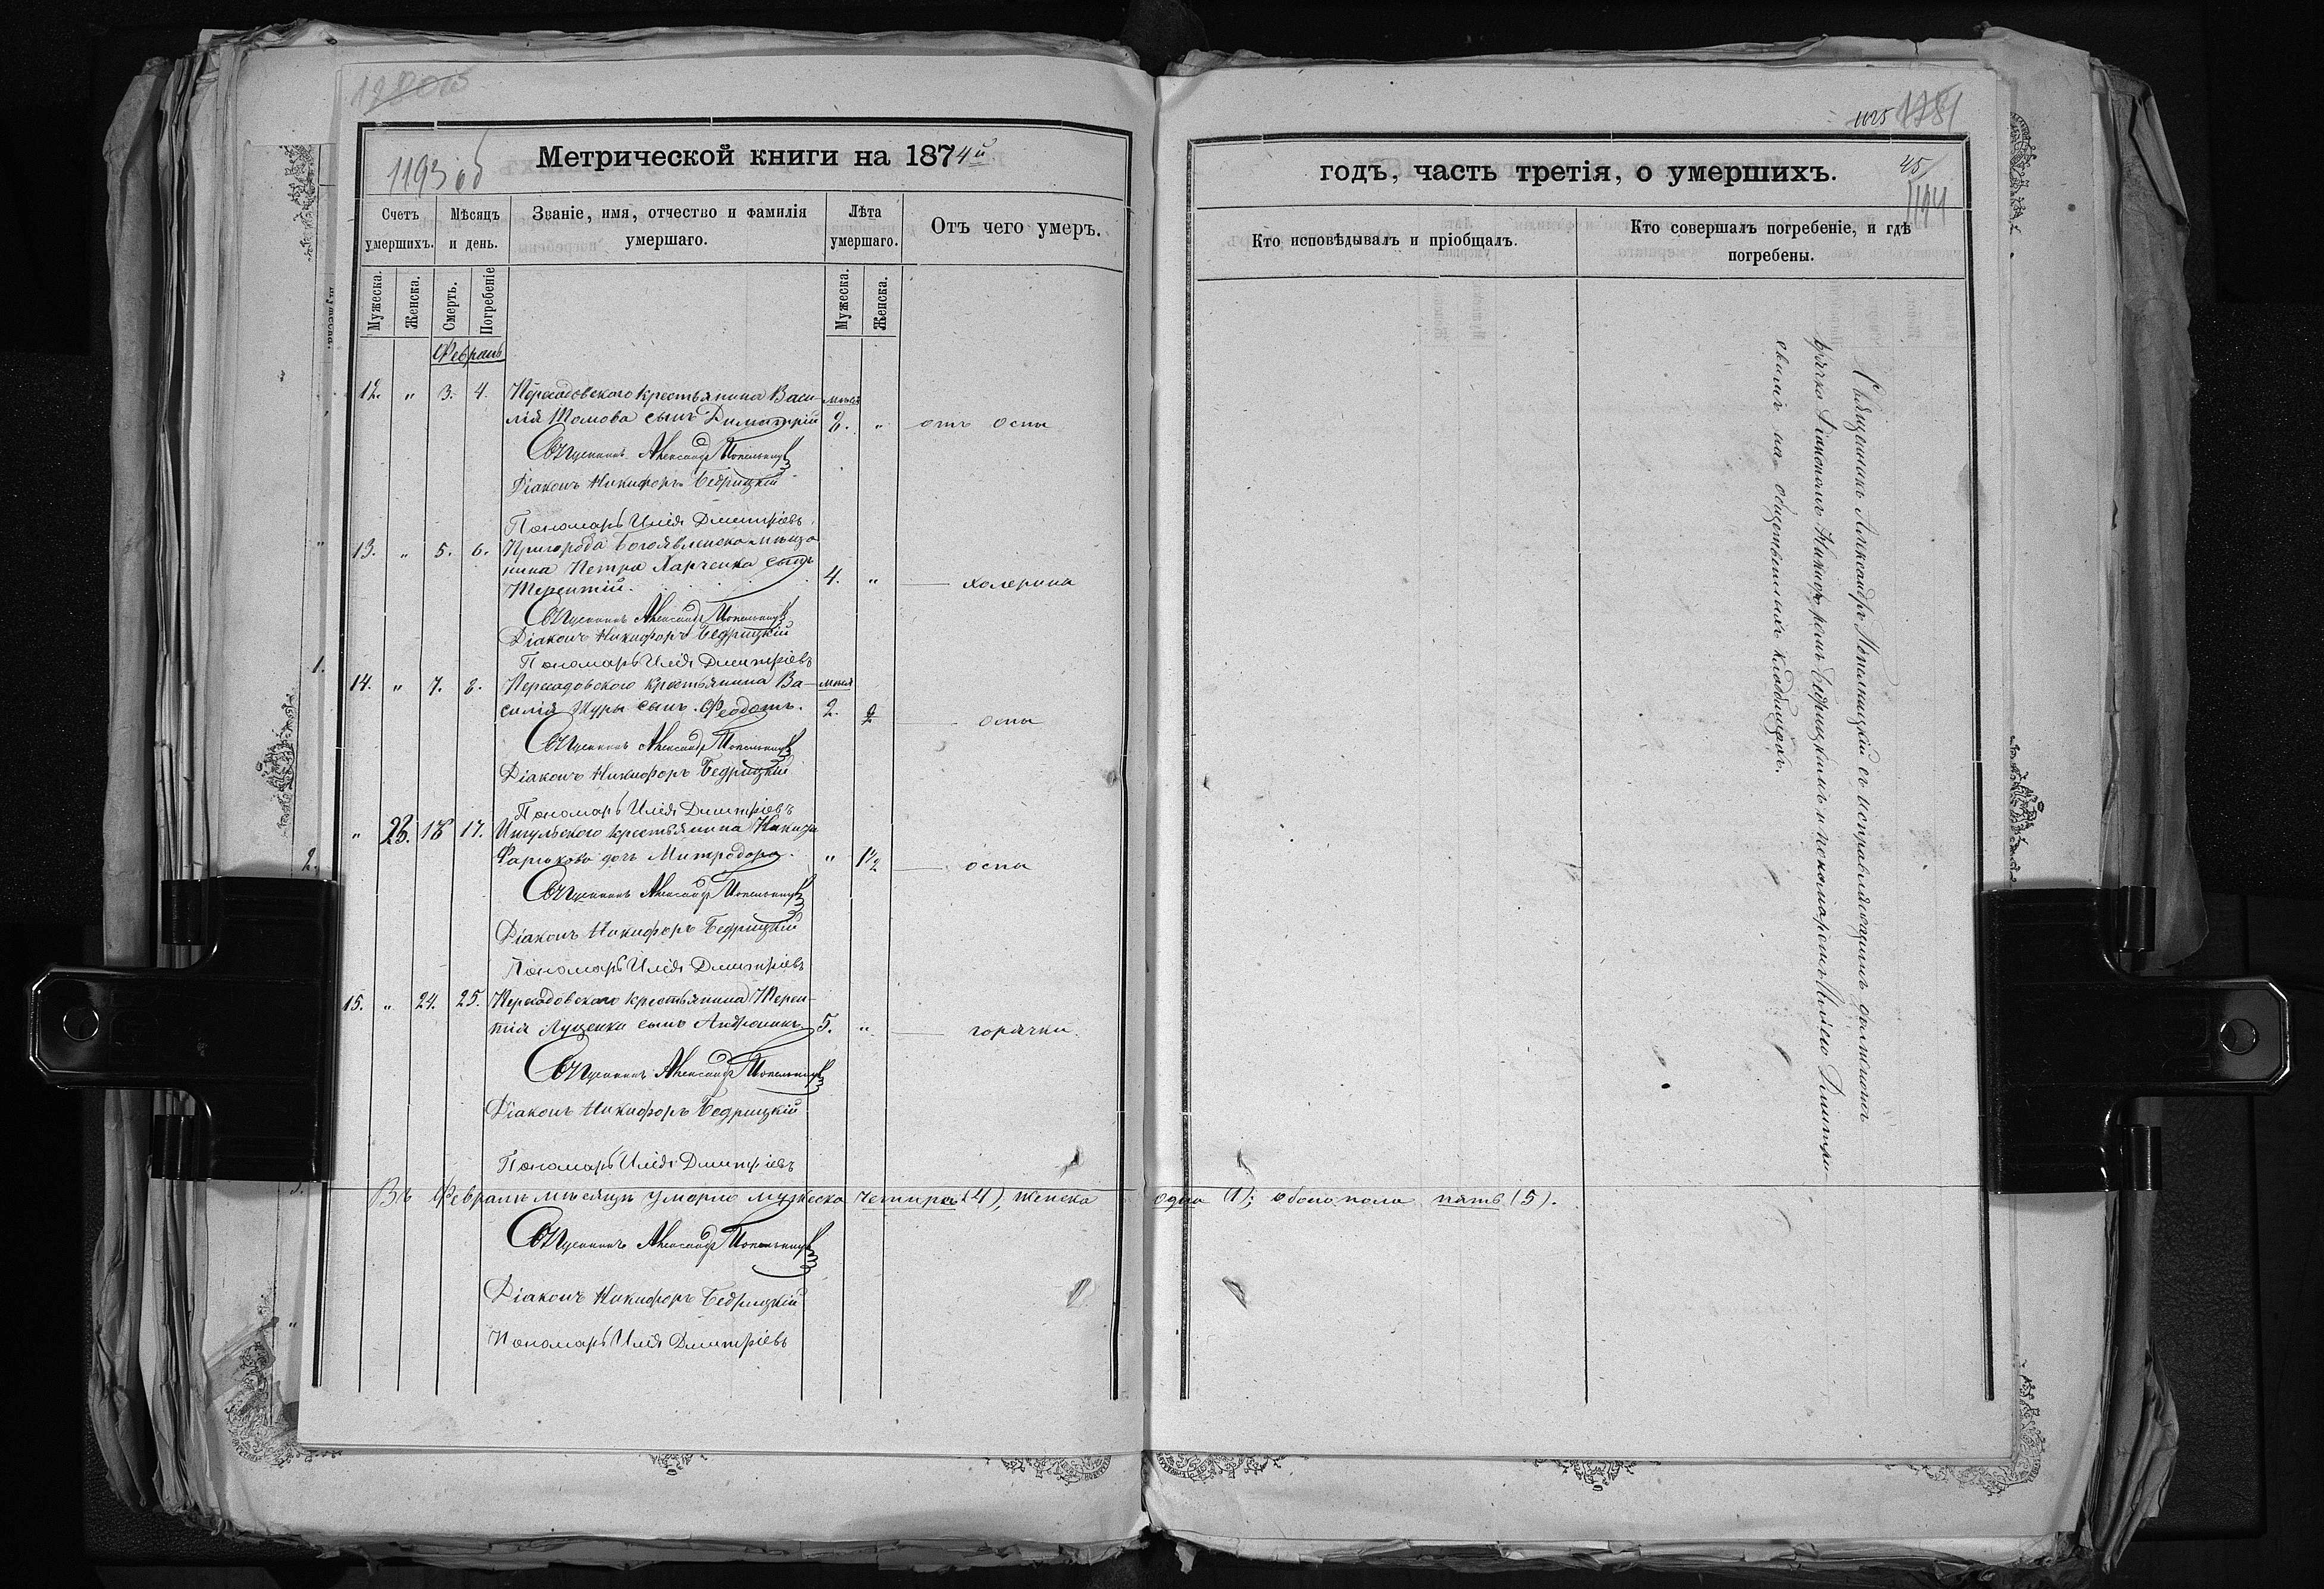 1280об
1193 об
Метрической книги на 1874й
Счетъ умершихъ.
Мѣсяцъ и день.
Званіе, имя, отчество и фамилія умершаго.
Лѣта умершаго.
Отъ чего умеръ.
Мужеска.
Женска.
Смерть.
Погребеніе
Мужеска.
Женска.
Февраль
12. " 3. 4. Пересадовского крестьянина Васи-
лія Томова сынъ Димитрій 2. " отъ оспы
Священникъ Александръ Попельницкій
Діаконъ Никифоръ Бедрицкій
Пономарь Илія Дмитріевъ
13. " 5. 6. Пригорода Богоявленска мѣща
нина Петра Харченка сынъ
Терентій. 4. " — холерина
Священникъ Александръ Попельницкій
Діаконъ Никифоръ Бедрицкій
Пономарь Илія Дмитріевъ
14. " 7. 8. Пересадовского крестьянина Ва-
силія Щуры сынъ Феодотъ. 2. — оспы
Священникъ Александръ Попельницкій
Діаконъ Никифоръ Бедрицкій
Пономарь Илія Дмитріевъ
" 23. 16 17. Ингульского крестьянина
дочь Митродора. " 1½ — оспы
Священникъ Александръ Попельницкій
Діаконъ Никифоръ Бедрицкій
Пономарь Илія Дмитріевъ
15. " 24. 25. Пересадовского крестьянина Терен-
тія Луценки сынъ Андроникъ 5. " — горячки.
Священникъ Александръ Попельницкій
Діаконъ Никифоръ Бедрицкій
Пономарь Илія Дмитріевъ
Въ Февралѣ мѣсяцѣ умерло мужеска четыре (4), женска одна (1); обоего пола пять (5).
Священникъ Александръ Попельницкій
Діаконъ Никифоръ Бедрицкій
Пономарь Илія Дмитріевъ
1281
45
1194
годъ, часть третія, о умершихъ.
Кто исповѣдывалъ и пріобщалъ.
Кто совершалъ погребеніе, и гдѣ погребены.
Священникъ Александръ Попельницкій съ исправляющимъ должность
дьячка Діакономъ Никифоромъ Бедрицкимъ и пономаремъ Иліею Димитрі-
евымъ на общественныхъ кладбищахъ.